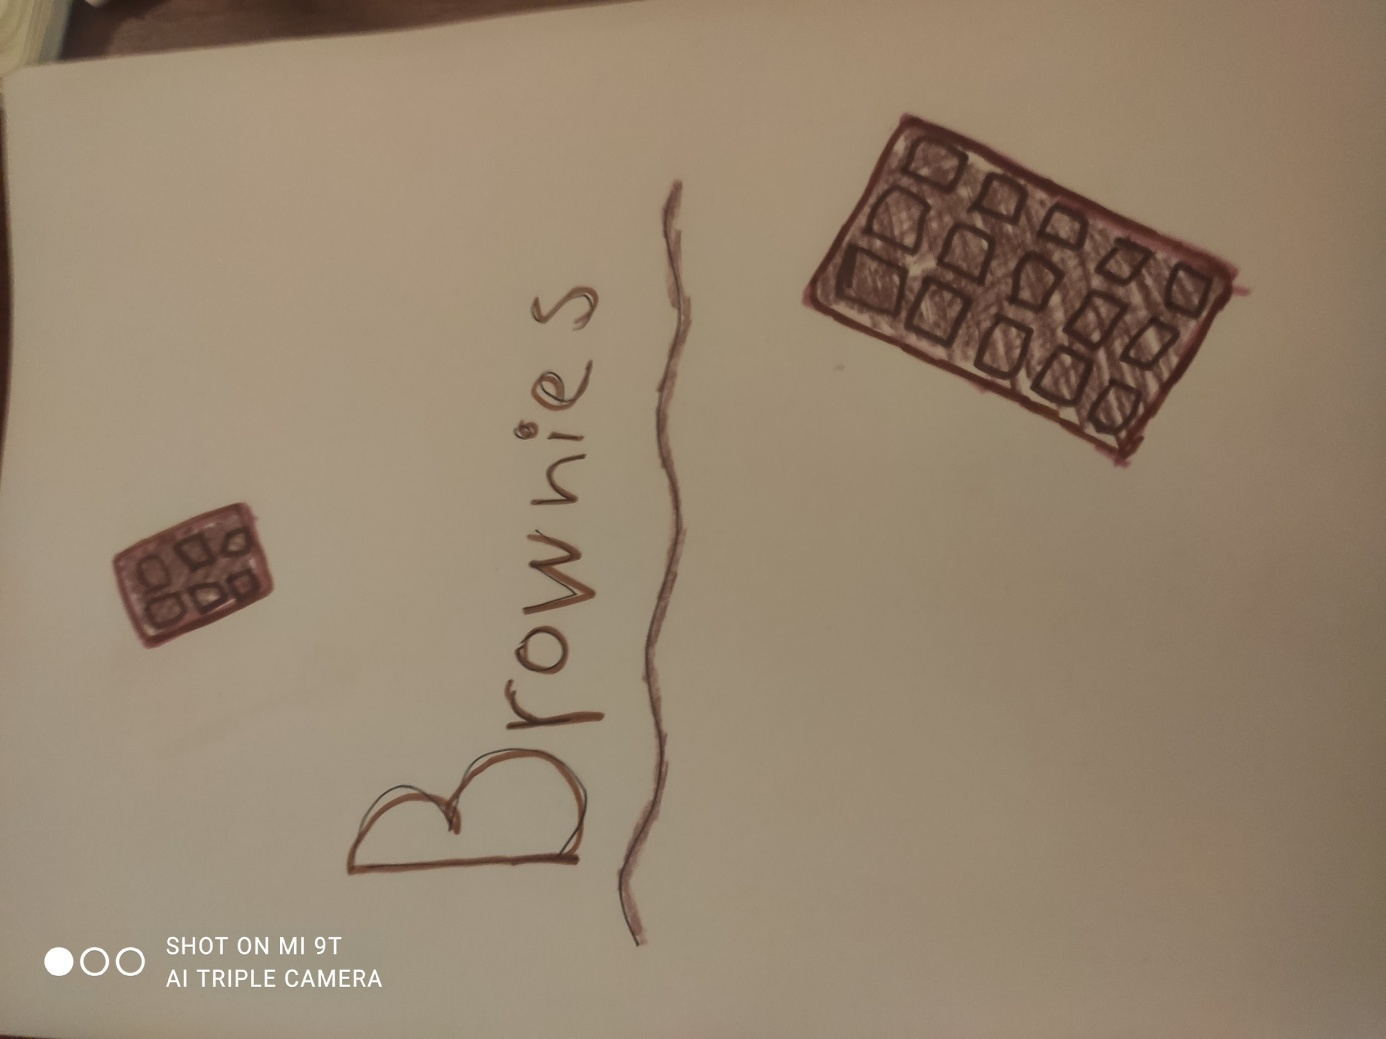 Brownies
SHOT ON MI 9T
AI TRIPLE CAMERA